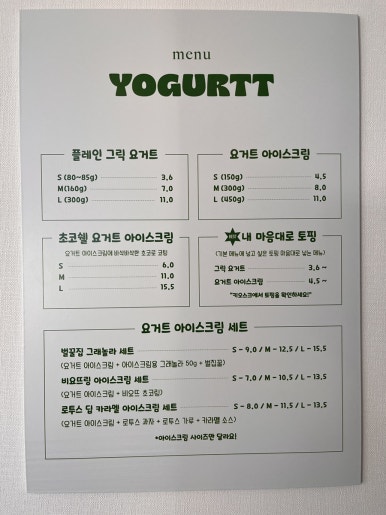 menu
YOGURTT
플레인 그릭 요거트
S (80~85g) 3,6
M(160g) 7,0
L (300g) 11,0
요거트 아이스크림
S (150g) 4,5
M (300g) 8,0
L (450g) 11,0
초코쉘 요거트 아이스크림
요거트 아이스크림에 바삭바삭한 초코로 코팅
S 6,0
M 11,0
L 15,5
내 마음대로 토핑
(기본 메뉴에 넣고 싶은 토핑 마음대로 넣는 메뉴)
그릭 요거트 3,6 ~
요거트 아이스크림 4,5 ~
*키오스크에서 토핑을 확인하세요!*
요거트 아이스크림 세트
벌꿀집 그래놀라 세트 S - 9,0 / M - 12,5 / L - 15,5
(요거트 아이스크림 + 아이스크림용 그래놀라 50g + 벌집꿀)
비요뜨링 아이스크림 세트 S - 7,0 / M - 10,5 / L - 13,5
(요거트 아이스크림 + 비요뜨 초코링)
로투스 딥 카라멜 아이스크림 세트 S - 8,0 / M - 11,5 / L - 13,5
(요거트 아이스크림 + 로투스 과자 + 로투스 가루 + 카라멜 소스)
*아이스크림 사이즈만 달라요!